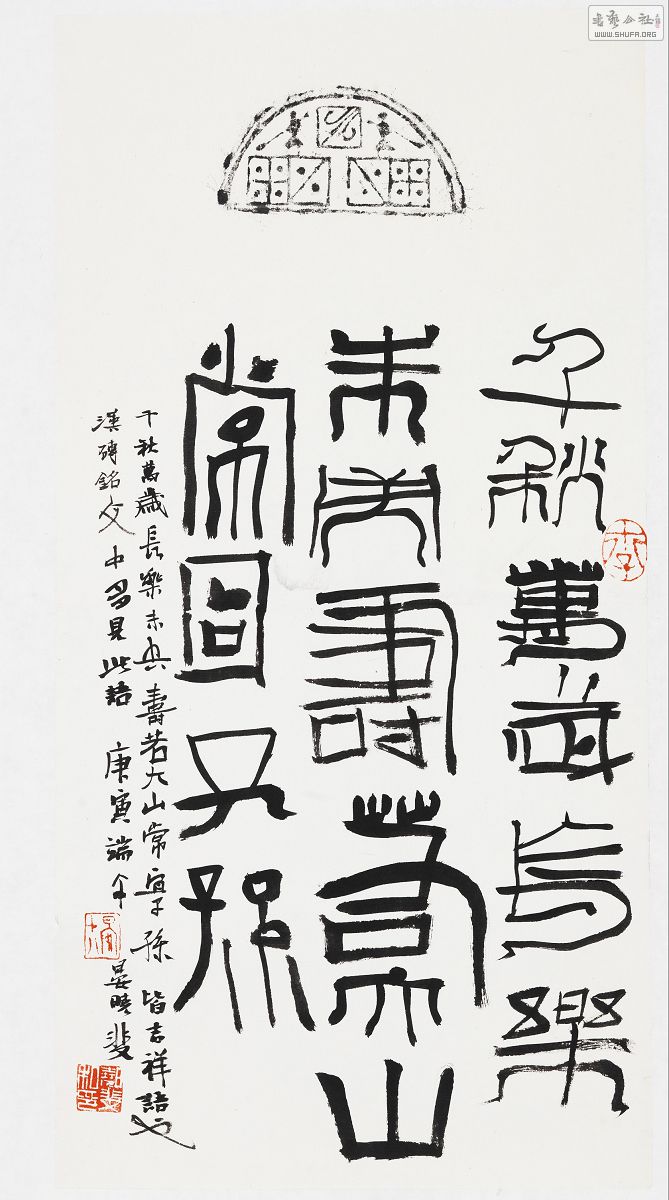 千秋萬歲長樂
未央壽若大山
常宜子孫
千秋萬歲長樂未央壽若大山常宜子孫皆吉祥語也
漢磚銘文中多見此語庚寅端午晏曉斐
書藝公社
WWW.SHUFA.ORG